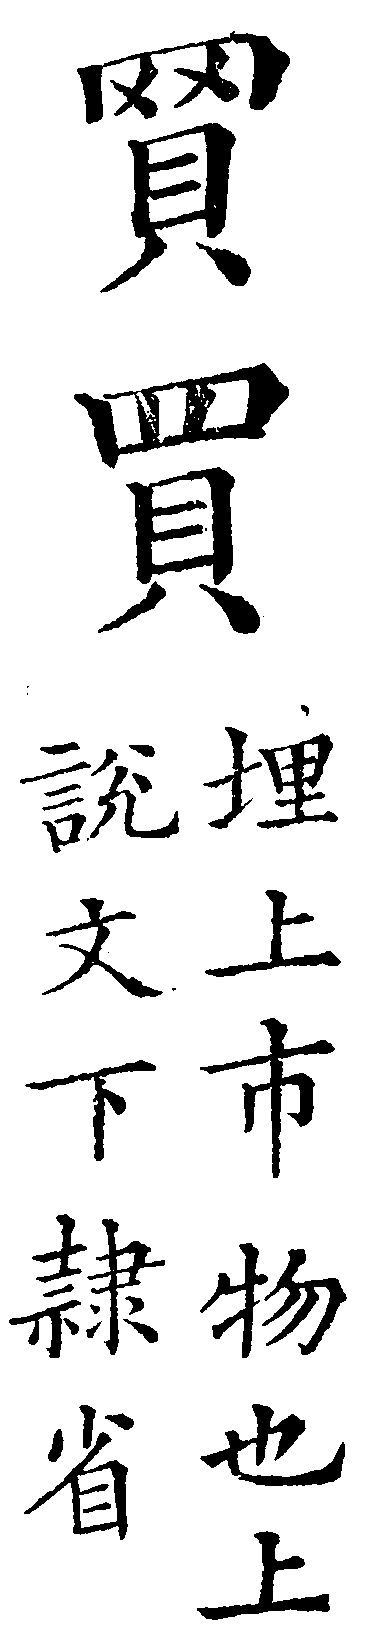 買買
埋上市物也上
說文下隷省